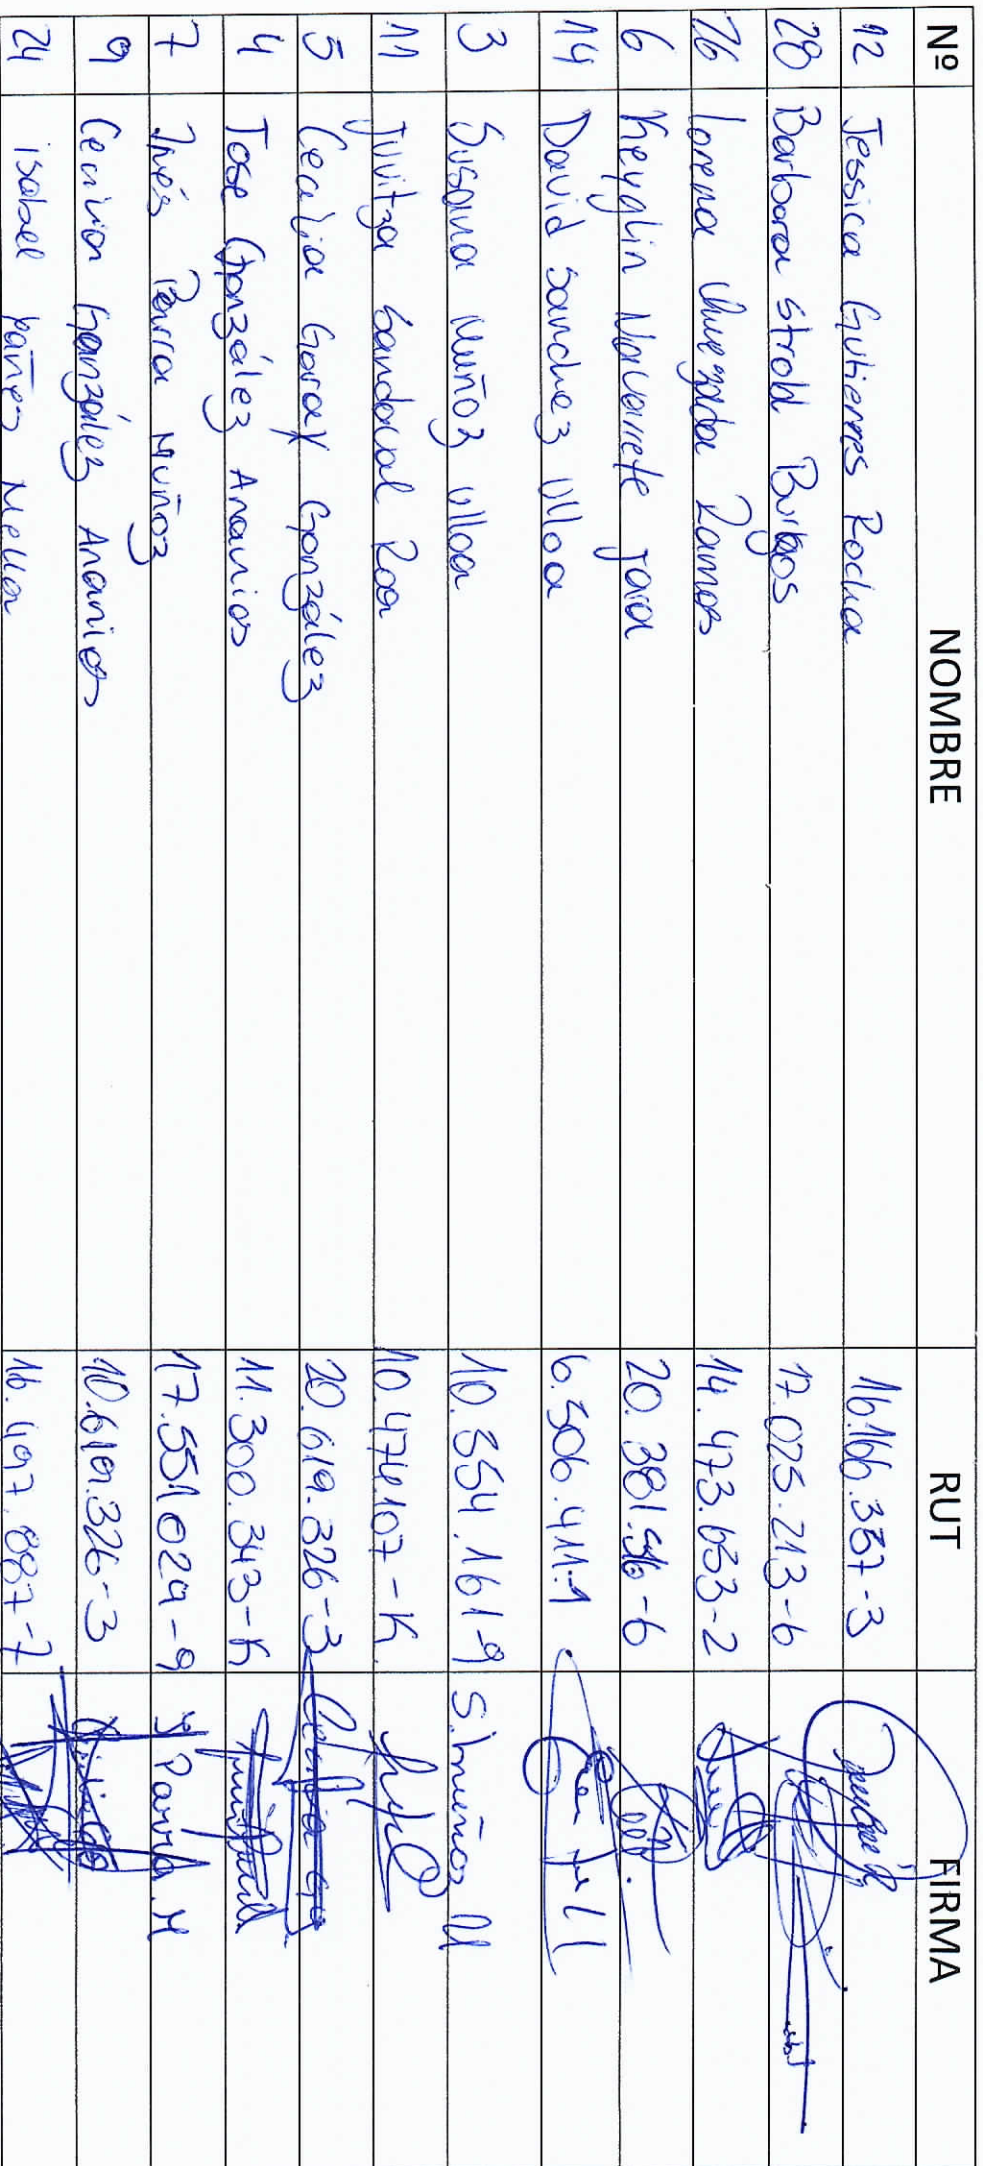 Nº NOMBRE RUT FIRMA
12 Jessica Gutierres Rocha 16.166.337-3
28 Barbara Strold Burgos 17.025.213-6
26 Lorena Quezada Ramos 14.473.653-2
6 Keyglin Navarrete Jara 20.381.516-6
14 David Sanchez Ulloa 6.506.411-1
3 Susana Muñoz Ulloa 10.354.161-9 S. Muñoz U
11 Juvitza Sandoval Roa 10.474.107-K
5 Cecilia Garay González 20.619.326-3
4 Jose González Ananias 11.300.343-K
7 Inés Parra Muñoz 17.551.029-9 Y Parra. M
9 Cecilia González Ananias 10.619.326-3
24 Isabel Yañez Mella 16.497.887-7